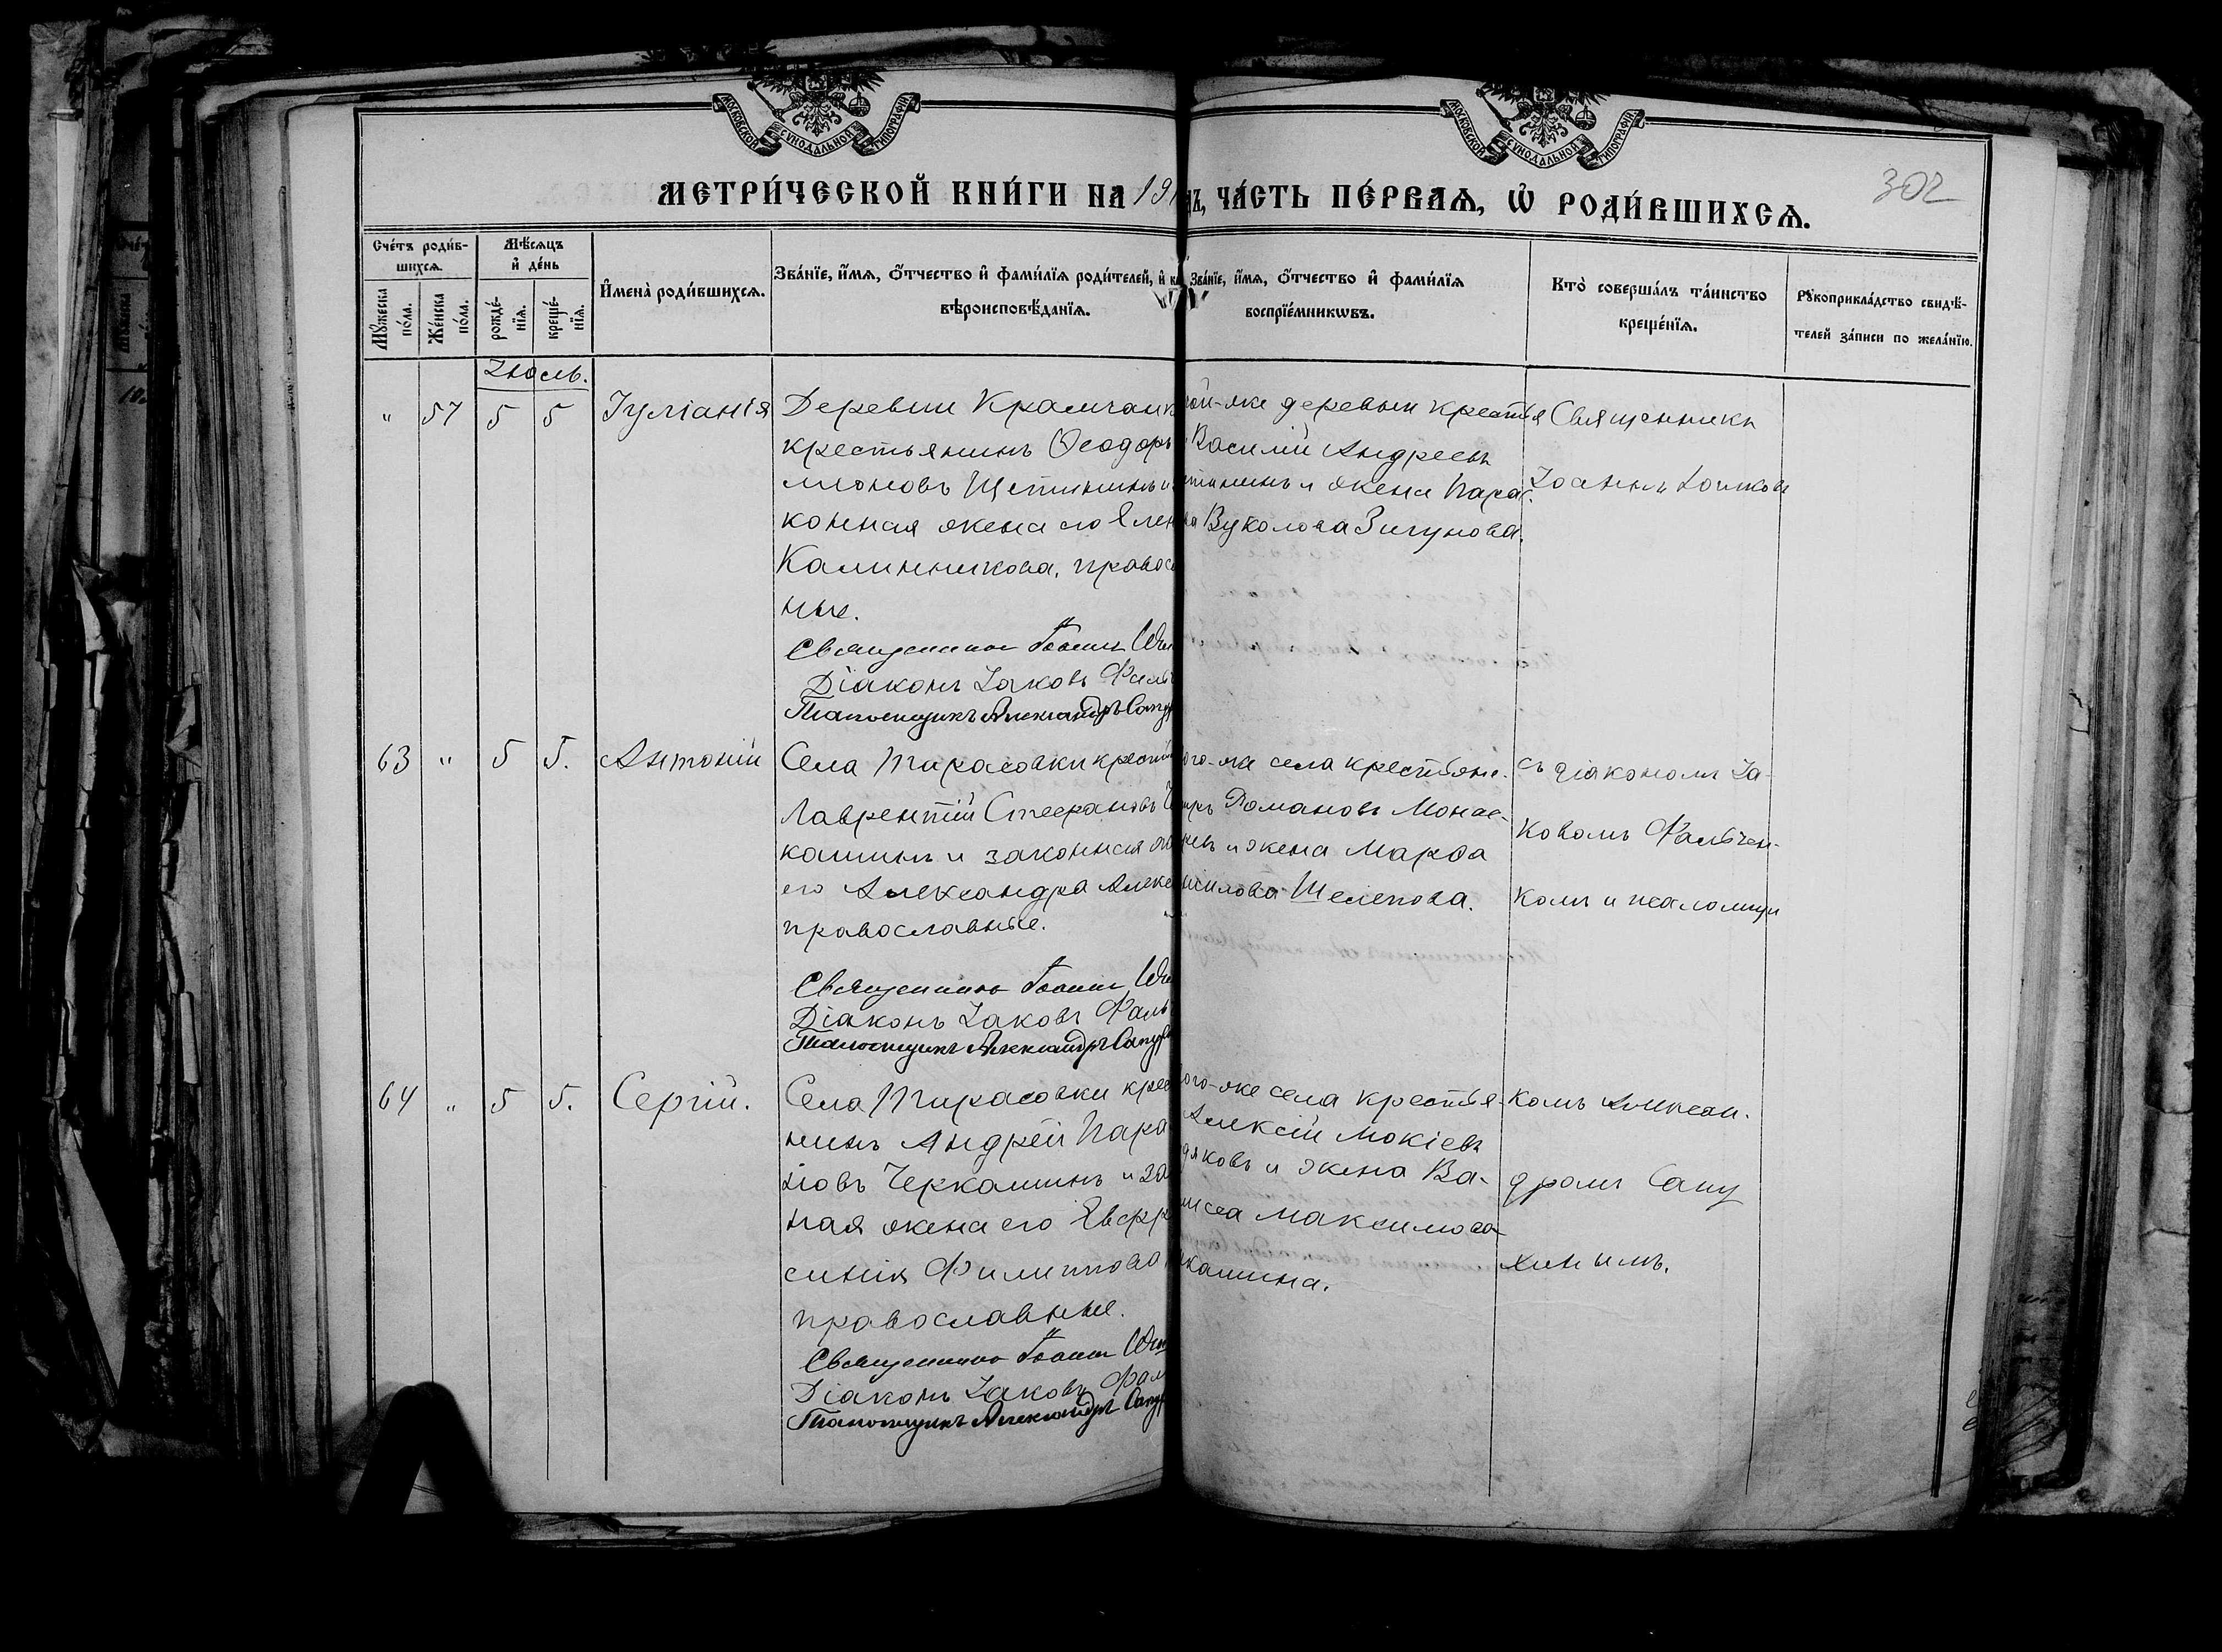 МОСКОВСКОЙ СѴНОДАЛЬНОЙ ТИПОГРАФІИ
МОСКОВСКОЙ СѴНОДАЛЬНОЙ ТИПОГРАФІИ
302
МЕТРИ́ЧЕСКОЙ КНИ́ГИ НА 191
ЧА́СТЬ ПЕ́РВАѦ, Ѡ҆ РОДИ́ВШИХСѦ.
Сче́тъ роди́в-
шихсѧ.
Мѣ́сѧцъ
и҆ де́нь
Мꙋ́жеска по́ла.
Же́нска по́ла.
рожде́-
нїѧ.
креще́-
нїѧ.
И҆мена̀ роди́вшихсѧ.
Зва́нїе, и҆́мѧ, ѻ҆́тчество и҆ фами́лїѧ роди́телей, и҆
вѣроисповѣ́данїѧ.
Зва́нїе, и҆́мѧ, ѻ҆́тчество и҆ фами́лїѧ
воспрїе́мникѡвъ.
Кто̀ соверша́лъ та́инство
креще́нїѧ.
Рꙋкоприкла́дство свидѣ́-
телей за́писи по жела́нїю.
Іюль.
" 57 5 5 Іуліанія
Деревни
крестьянинъ Ѳеодоръ
Щетининъ и
конная жена его Елен
Калинникова, правос
ные.
Священникъ Іоаннъ
Діаконъ Іаковъ Фальч
Псаломщикъ Александръ Сапу
ой-же деревни крестья
Василій Андреевъ
тининъ и жена Парас.
Вуколова Зигунова.
Священникъ
Іоаннъ
63 " 5 5. Антоній
Села Тарасовки крестья
Лаврентій Стефановъ Че
кашинъ и законная же
его Александра Алексе
православные.
Священникъ Іоаннъ
Діаконъ Іаковъ Фальч
Псаломщикъ Александръ Сапух
ого-же села крестьяне.
Романовъ Монас-
и жена Марѳа
Шелепова.
съ діакономъ Іа-
ковомъ Фальчен-
комъ и псаломщи
64 " 5 5. Сергій.
Села Тарасовки крес
нинъ Андрей Пара
новъ Черкашинъ и за
ная жена его Евфр
синія Филиппова
православные.
Священникъ Іоаннъ
Діаконъ Іаковъ Фаль
Псаломщикъ Александръ Сапух
ого-же села крестья-
Алексій Мокіевъ
дяковъ и жена Ва-
Максимова
кашина.
комъ Алексан.
дромъ Сапу
хинымъ.